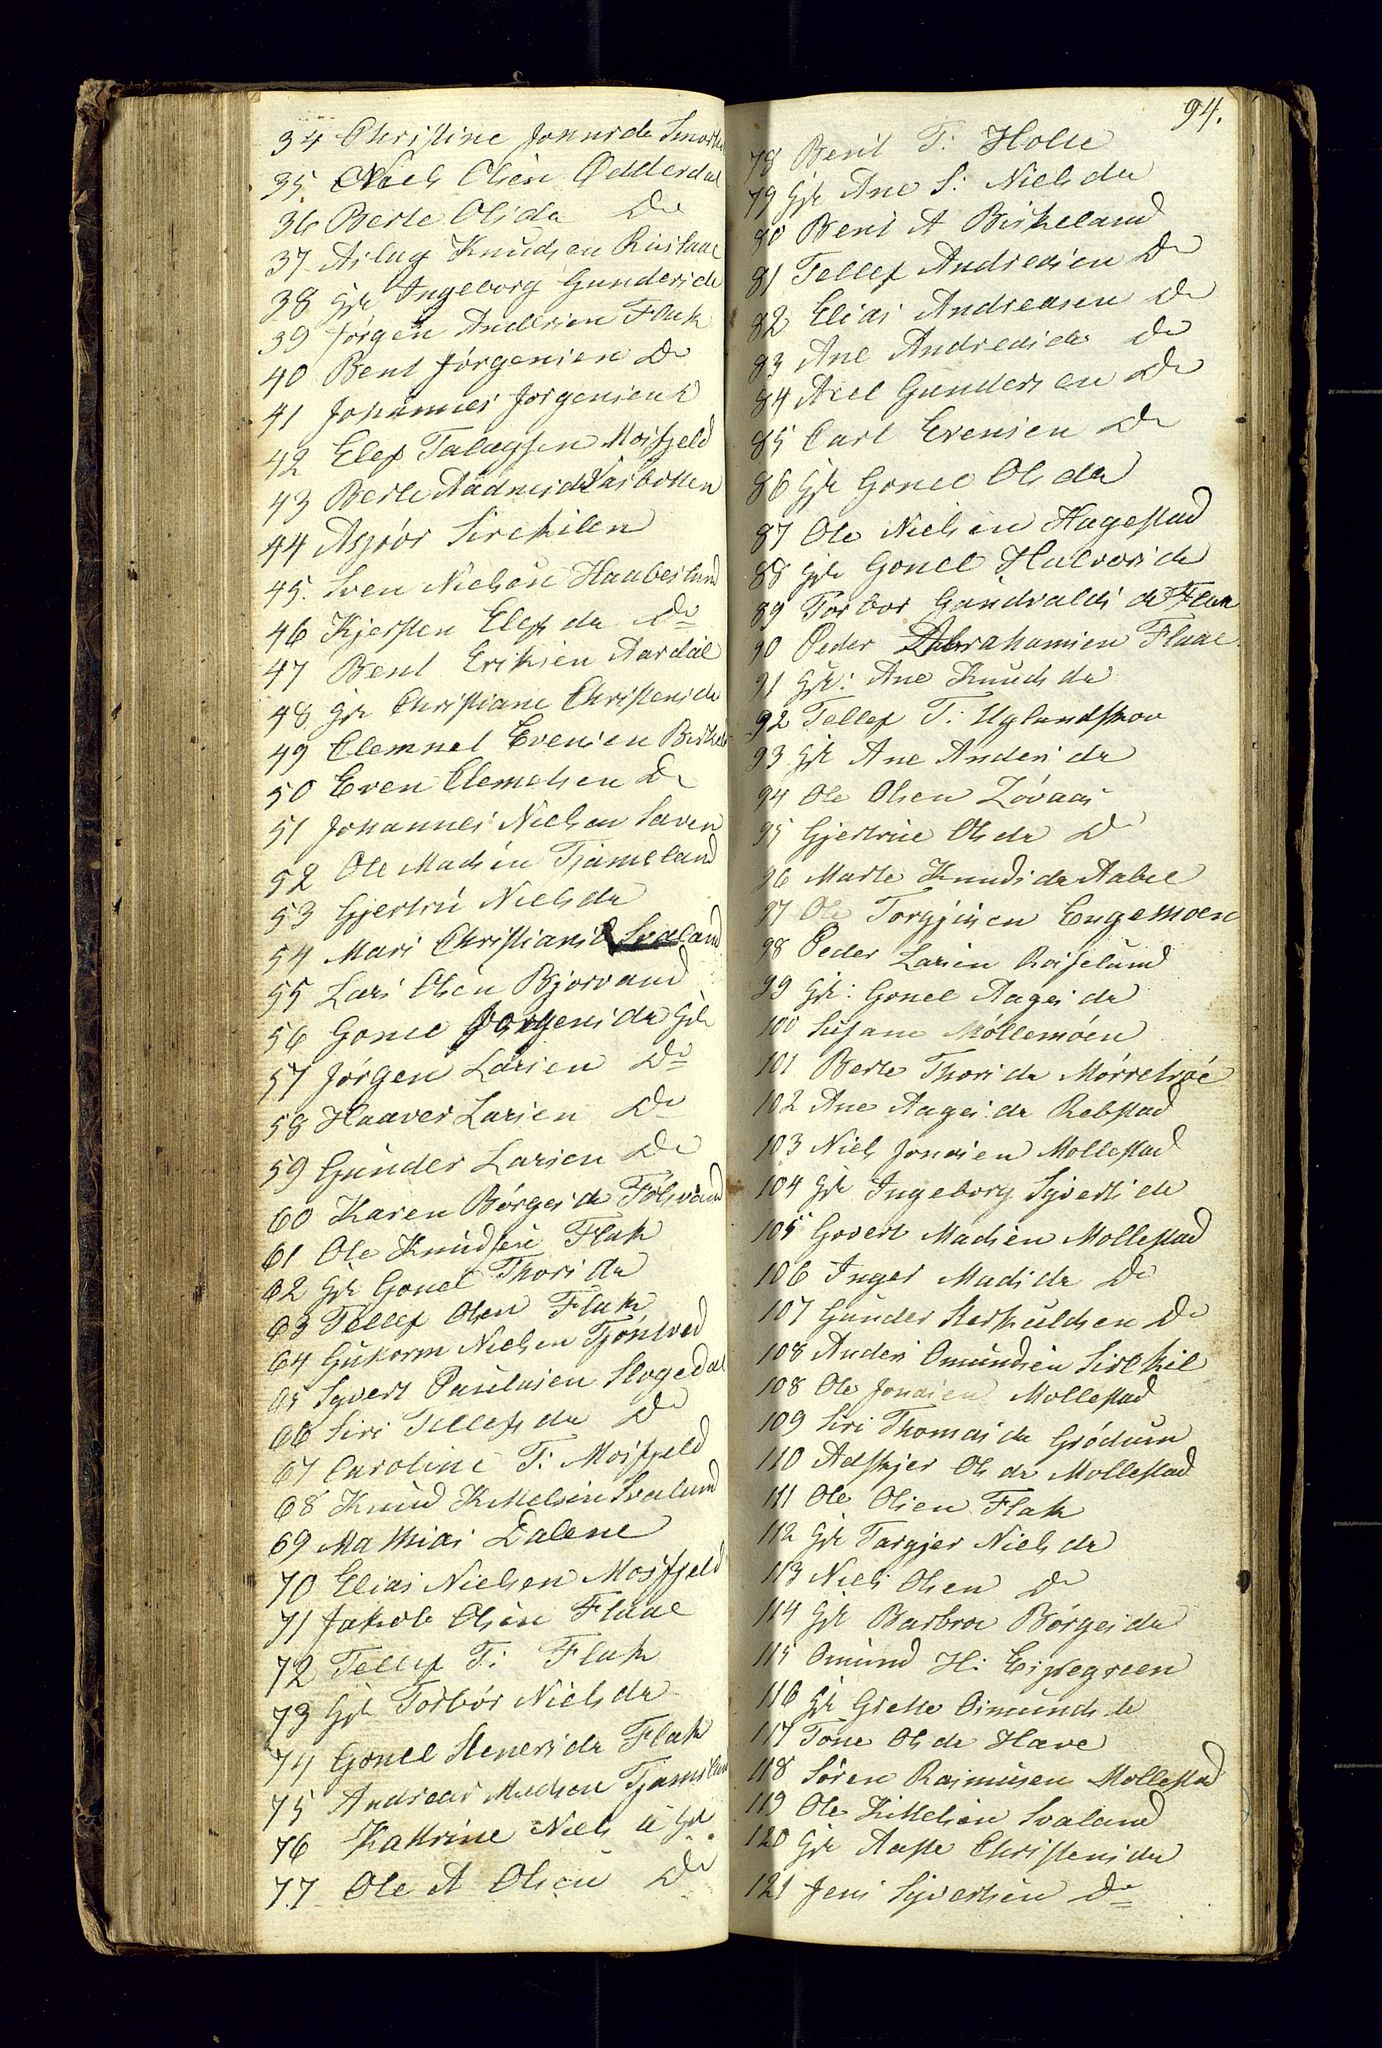 34 Christine Jonnsda
35 Niels Olsen Odderdal
36 Berte Olsda Do
37 Aslag Knudsen Rustaae
38 Gk Ingeborg Gundersda
39 Jørgen Andersen Flak
40 Bent Jørgensen Do
41 Johannes Jørgensen
42 Elef Talagsen Mosfjeld
43 Berte Aadnesda
44 Asjør Sirekilen
45. Sven Nielsen Haabesland
46 Kjersten Elefsda Do
47 Bent Eriksen Aardal
48 Gk Christiane Christensda
49 Clemnet Evensen Birkel
50 Even Clemetsen Do
51 Johannes Nielsen Saven
52 Ole Madsen Tjameland
53 Gjertru Nielsda
54 Mari Christians Svaland
55 Lars Olsen Bjorvand
56 Gonel Jørgensda Gk
57 Jørgen Larsen Do
58 Haaver Larsen Do
59 Gunder Larsen Do
60 Karen Børgesda Følsvand
61 Ole Knudsen Flak
62 Gk Gonel Thorsda
63 Tellef Olsen Flak
64 Gutorm Nielsen Tjøntved
65 Syvert Paulusen Slogedal
66 Siri Tellefsda Do
67 Caroline T: Mosfjeld
68 Knud Kittelsen Svaland
69 Mathias Dalene
70 Elias Nielsen Mosfjeld
71 Jakob Olsen Flaae
72 Tellef T: Flak
73 Gk Torbør Nielsda
74 Gonel Stenersda Flak
75 Andreas Madsen Tjameland
76 Kattrine Niels Gk
77 Ole A Olsen Do
94.
78 Berit T: Holte
79 Gk Ane S: Nielsda
80 Bent A Birkeland
81 Tellef Andreasen Do
82 Elias Andreasen Do
83 Ane Andreasda Do
84 Axel Gundersen Do
85 Carl Evensen Do
86 Gk Gonel Olsda
87 Ole Nielsen Hagestad
88 Gk Gonel Halvorsda
89 Torbor Gundvaldsda Flak
90 Peder Abrahamsen Flaae
91 Gk: Ane Knudsda
92 Tellef T: Uglandskov
93 Gk Ane Andersda
94 Ole Olsen Løvaas
95 Gjertrue Olsda Do
96 Marte Knudsda Aabel
97 Ole Torgjusen Engemoen
98 Peder Larsen Rosselund
99 Gk: Gonel Aagesda
100 Susane Møllemoen
101 Berte Thorsda
102 Ane Aagesda Rebstad
103 Niels Jonasen Mollestad
104 Gk Ingeborg Syvertsda
105 Govert Madsen Mollestad
106 Inger Madsda Do
107 Gunder Sterkuldsen Do
108 Anders Omundsen Sirekil
108 Ole Jonasen Mollestad
109 Siri Thomasda Grødum
110 Adskjer Olsda Mollestad
111 Ole Olsen Flak
112 Gk Targjer Nielsda
113 Niels Olsen Do
114 Gk Barbroe Børgesda
115 Omund H: Espegreen
116 Gk Grette Osmundsda
117 Tone Olsda Have
118 Søren Rasmusen Mollestad
119 Ole Kittelsen Svaland
120 Gk Aaste Christensda
121 Jens Syvertsen Do